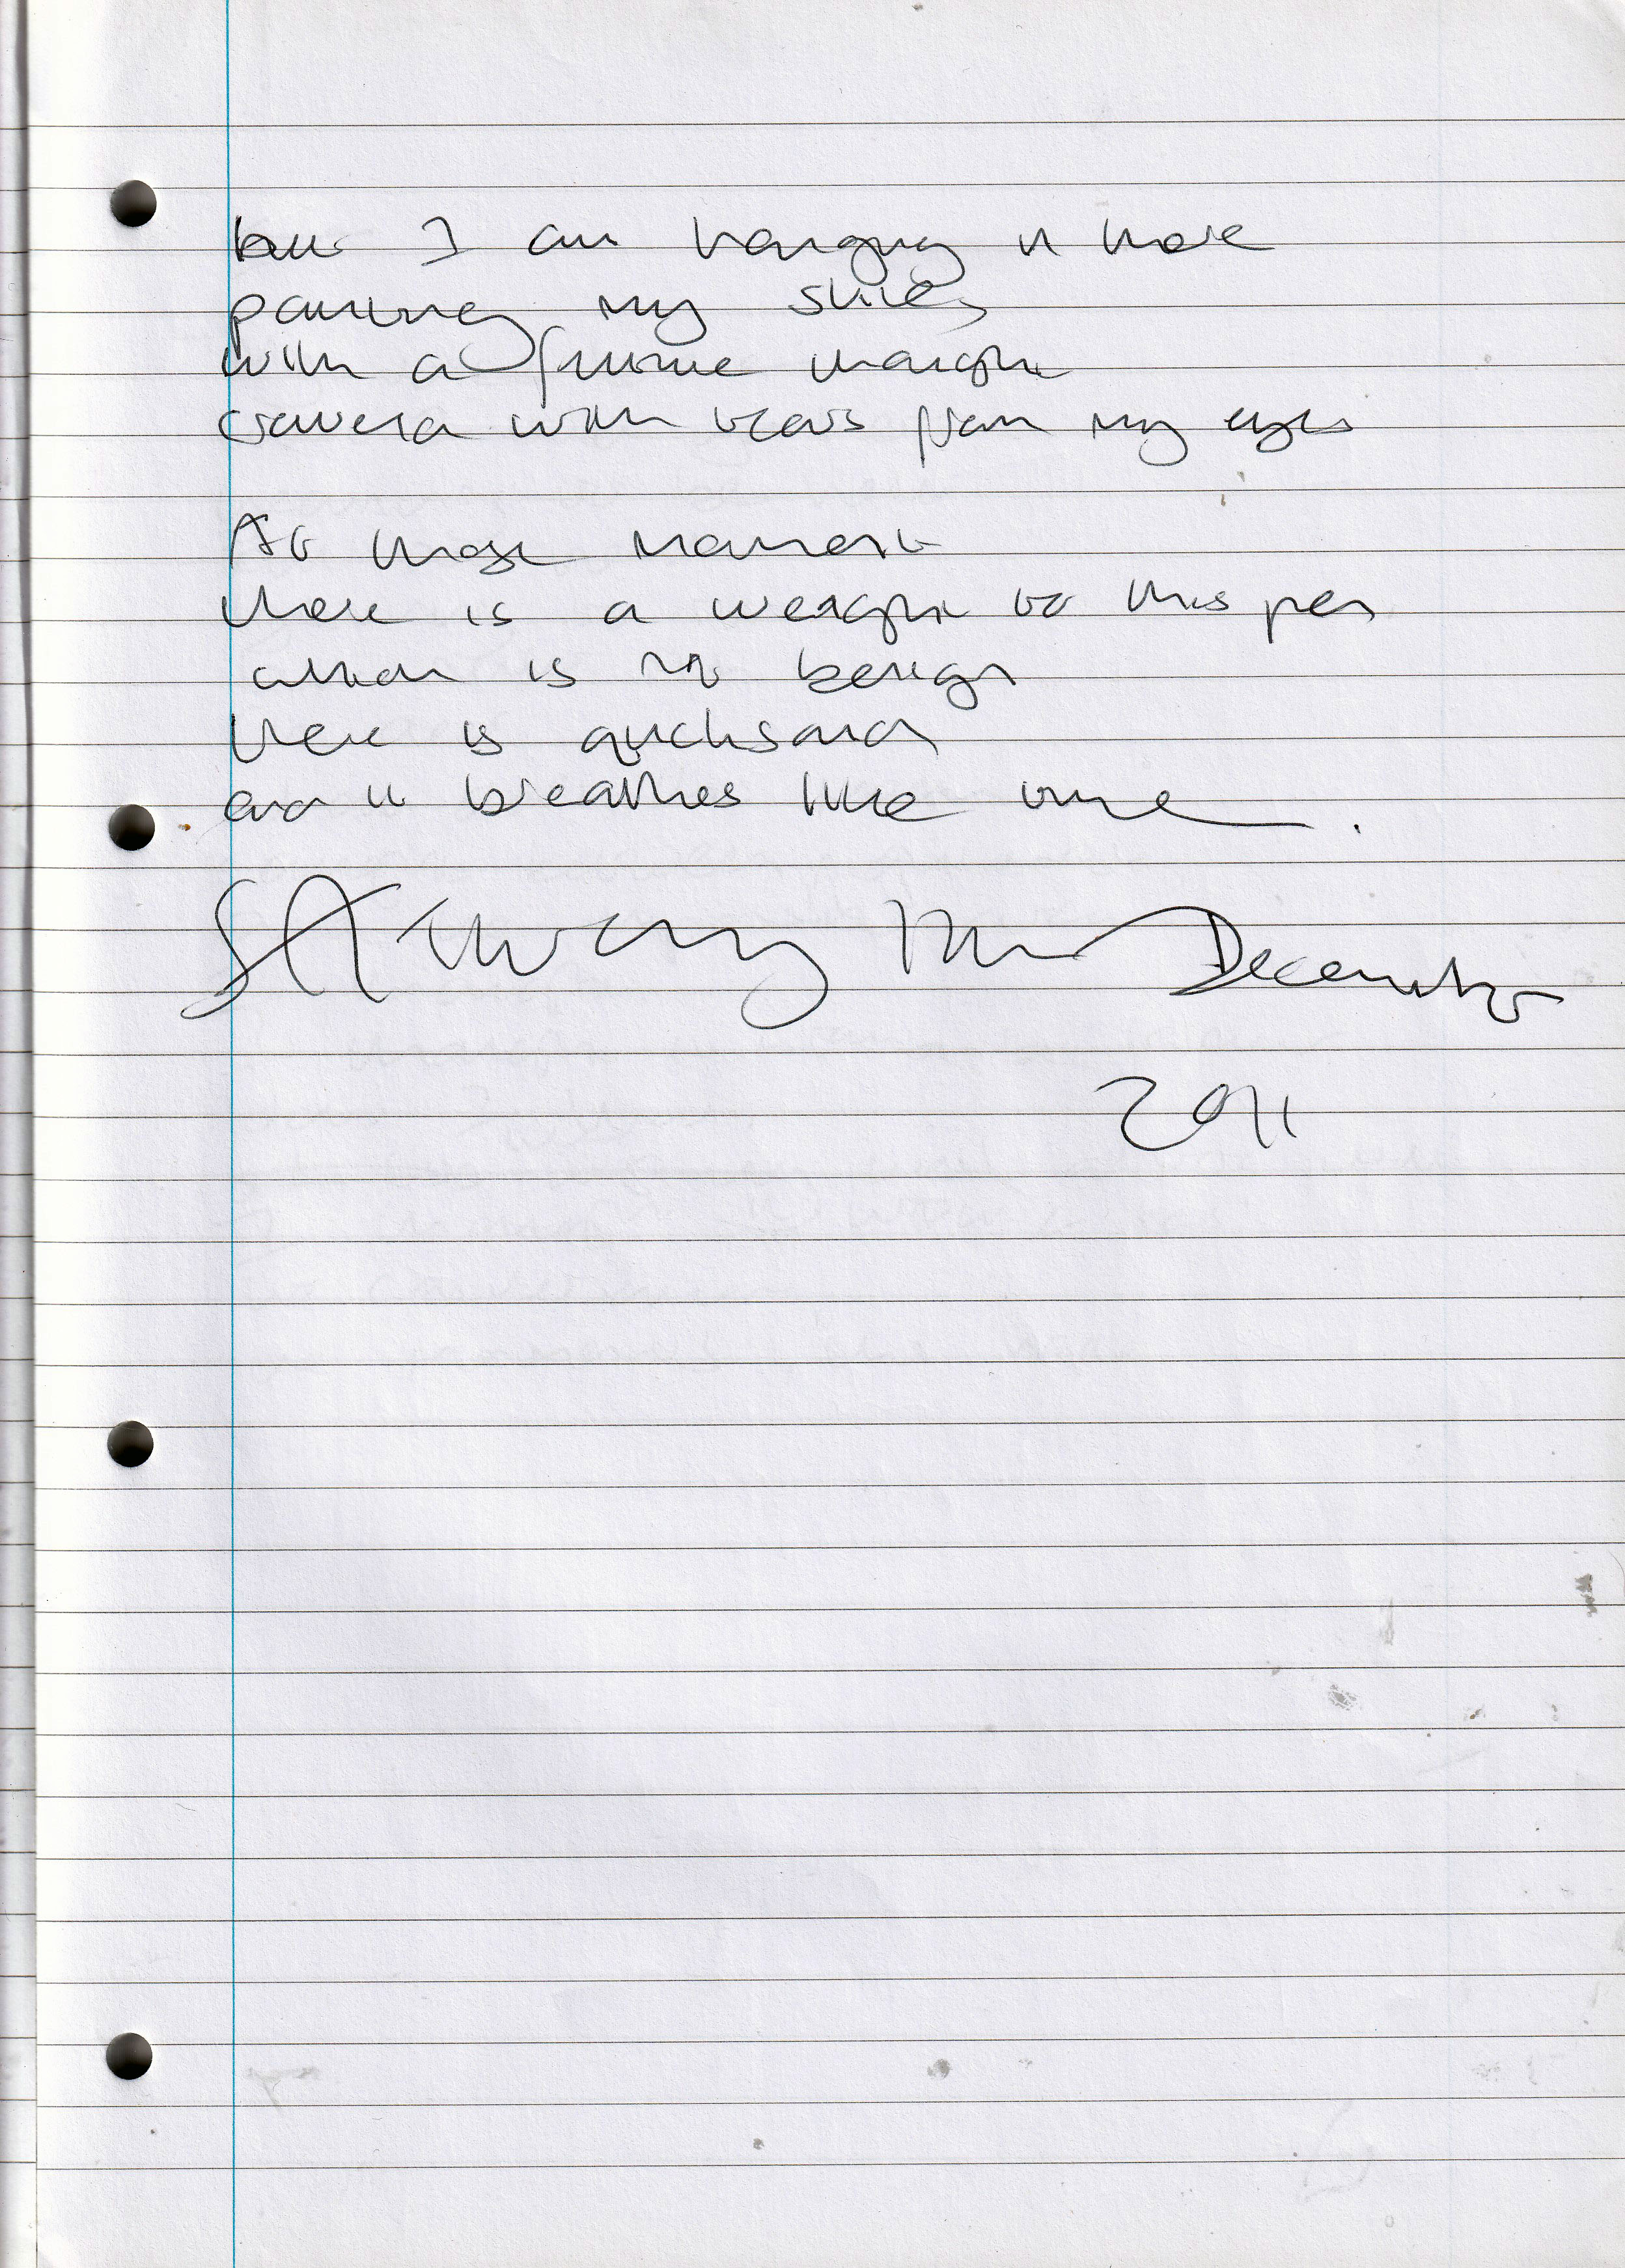 but I am hanging in there
painting my skies
with a future maybe
covered with tears from my eyes
At these moment
there is a weight to this pen
which is not benign
there is quicksand
and it breathes like time .
December
2011